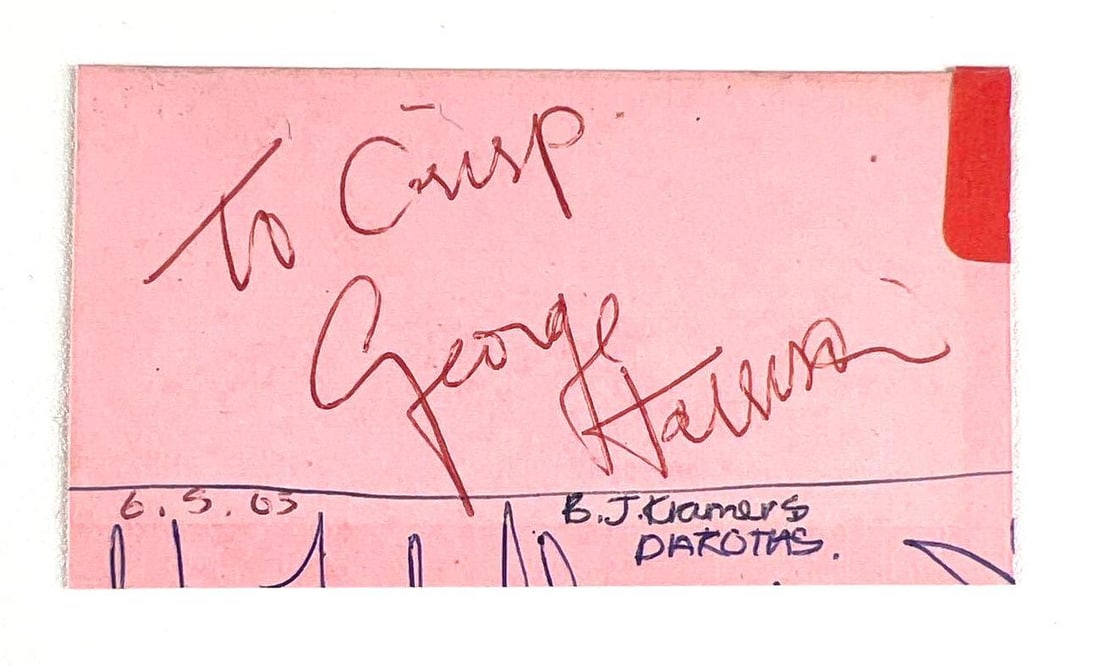 To Crisp
George
Harrison
6.5.63
B.J.Kramers
DAKOTAS.